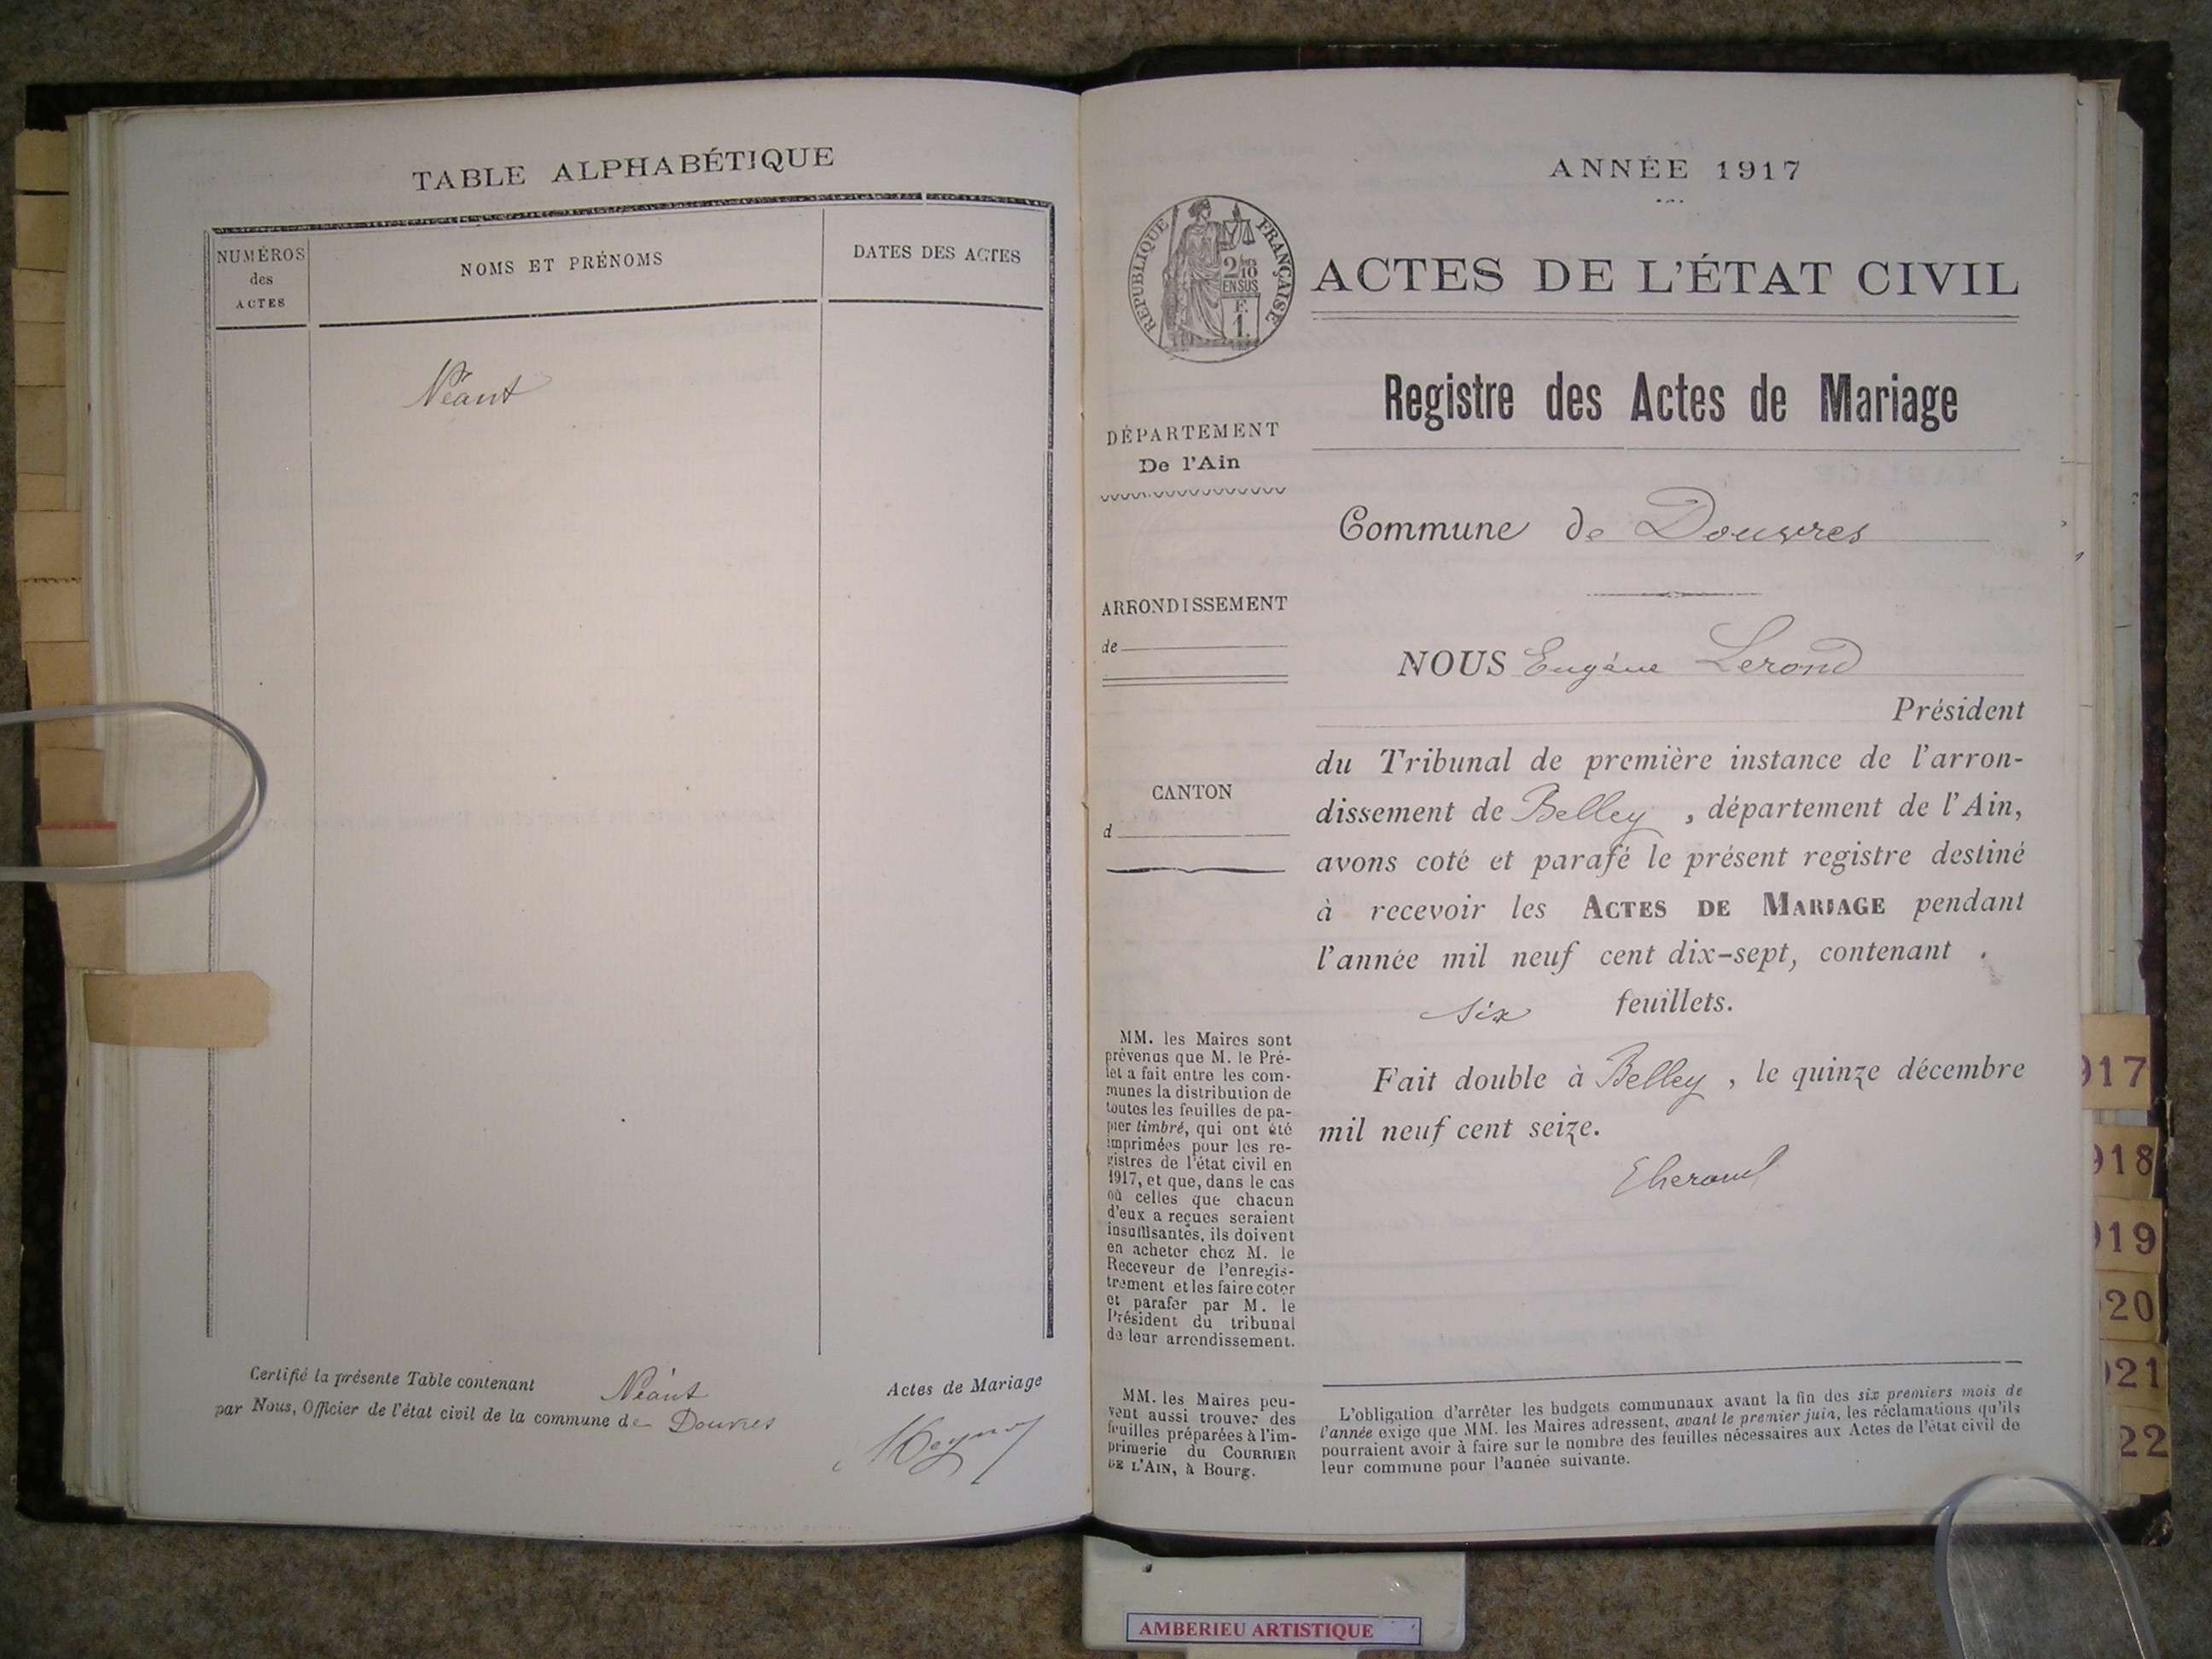 TABLE ALPHABÉTIQUE
NUMÉROS
des
ACTES
NOMS ET PRÉNOMS
DATES DES ACTES
Néant
Certifié la présente Table contenant Néant Actes de Mariage
par Nous, Officier de l'état civil de la commune de Douvres
ANNÉE 1917
RÉPUBLIQUE FRANÇAISE
2/10
EN SUS
F.
1.
ACTES DE L'ÉTAT CIVIL
Registre des Actes de Mariage
DÉPARTEMENT
De l'Ain
Commune de Douvres
ARRONDISSEMENT
de
NOUS Eugène Lerond
Président
du Tribunal de première instance de l'arron-
dissement de Belley, département de l'Ain,
avons coté et parafé le présent registre destiné
à recevoir les ACTES DE MARIAGE pendant
l'année mil neuf cent dix-sept, contenant
six feuillets.
Fait double à Belley, le quinze décembre
mil neuf cent seize.
CANTON
d
MM. les Maires sont
prévenus que M. le Pré-
fet a fait entre les com-
munes la distribution de
toutes les feuilles de pa-
pier timbré, qui ont été
imprimées pour les re-
gistres de l'état civil en
1917, et que, dans le cas
où celles que chacun
d'eux a reçues seraient
insuffisantes, ils doivent
en acheter chez M. le
Receveur de l'enregis-
trement et les faire coter
et parafer par M. le
Président du tribunal
de leur arrondissement.
MM. les Maires peu-
vent aussi trouver des
feuilles préparées à l'im-
primerie du COURRIER
DE L'AIN, à Bourg.
L'obligation d'arrêter les budgets communaux avant la fin des six premiers mois de
l'année exige que MM. les Maires adressent, avant le premier juin, les réclamations qu'ils
pourraient avoir à faire sur le nombre des feuilles nécessaires aux Actes de l'état civil de
leur commune pour l'année suivante.
917
918
919
20
921
22
AMBERIEU ARTISTIQUE